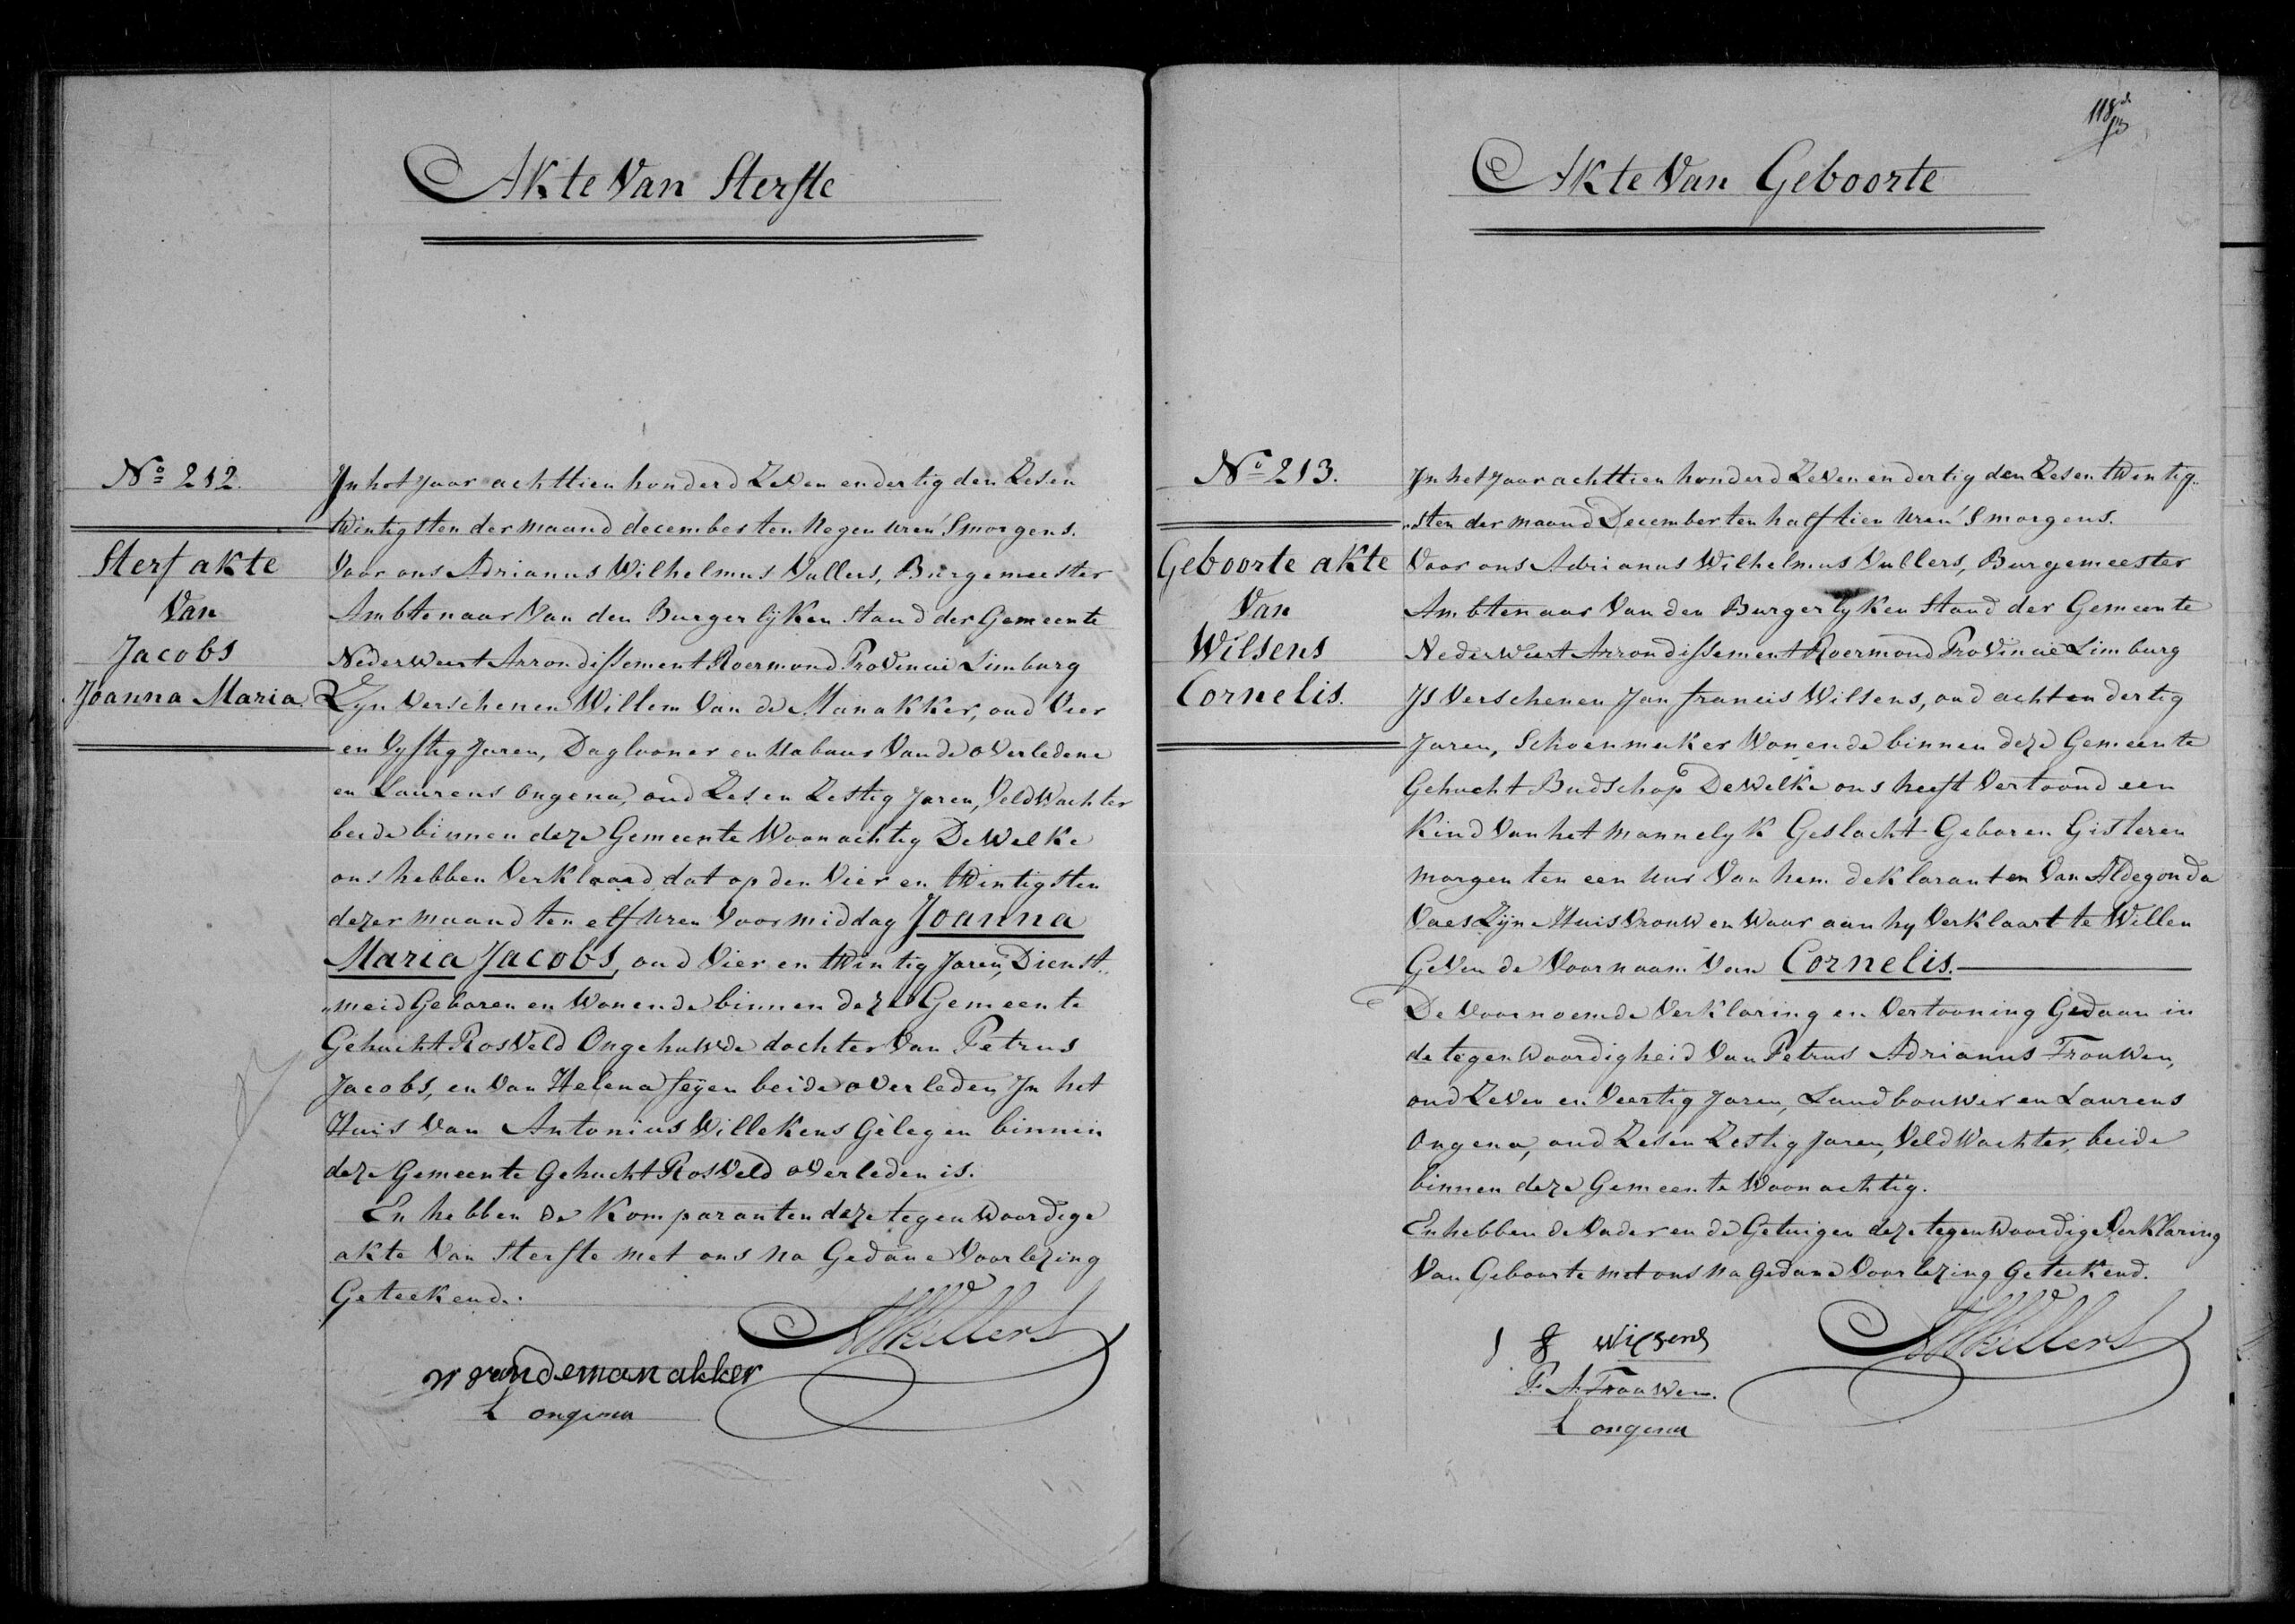 Akte Van Sterfte
No 212.
Sterf akte
Van
Jacobs
Joanna Maria
In het Jaar achttien honderd Zeven en dertig den Zes en
twintigsten der maand december ten Negen uren 'Smorgens.
Voor ons Adrianus Wilhelmus Vullers, Burgemeester
Ambtenaar Van den Burgerlijken Stand der Gemeente
Nederweert Arrondissement Roermond Provincie Limburg
Zyn Verschenen Willem Van de Manakker, oud Vier
en Vyftig Jaren, Daglooner en Nabuur Van de overledene
en Laurens Ongena, oud Zes en Zestig Jaren, Veldwachter
beide binnen deze Gemeente Woonachtig Dewelke
ons hebben Verklaard dat op den Vier en twintigsten
dezer maand ten elf uren Voormiddag Joanna
Maria Jacobs, oud Vier en twintig Jaren, Dienst„
„meid Geboren en Wonende binnen deze Gemeente
Gehucht RosVeld Ongehuwde dochter Van Petrus
Jacobs, en Van Helena feijen beide overleden In het
Huis Van Antonius Willekens Gelegen binnen
deze Gemeente Gehucht RosVeld overleden is.
En hebben de Komparanten deze tegenwoordige
akte Van Sterfte met ons na Gedane Voorlezing
Geteekend.
AWVullers
W vandemanakker
L ongena
118de
Akte Van Geboorte
No 213.
Geboorte akte
Van
Wilsens
Cornelis.
In het Jaar achttien honderd Zeven en dertig den Zes en twintig„
„sten der maand December ten half tien uren 'Smorgens.
Voor ons Adrianus Wilhelmus Vullers, Burgemeester
Ambtenaar Van den Burgerlyken Stand der Gemeente
Nederweert Arrondissement Roermond Provincie Limburg
Is Verschenen Jan francis Wilsens, oud acht en dertig
Jaren, Schoenmaker Wonende binnen deze Gemeente
Gehucht Budschop Dewelke ons heeft Vertoond een
Kind Van het mannelyk Geslacht Geboren Gisteren
morgen ten een uur Van hem deklarant en Van Aldegonda
Vaes Zijne HuisVrouw en Waar aan hy Verklaart te Willen
Geven de Voornaam Van Cornelis.
De Voornoemde Verklaring en Vertooning Gedaan in
de tegenwoordigheid Van Petrus Adrianus Trouwen,
oud Zeven en Veertig Jaren, Landbouwer en Laurens
Ongena, oud Zes en Zestig Jaren, VeldWachter, beide
binnen deze Gemeente Woonachtig.
En hebben de Vader en de Getuigen deze tegenwoordige Verklaring
Van Geboorte met ons na Gedane Voorlezing Geteekend.
J f wilsens
AWVullers
P. A. Trouwen.
L ongena